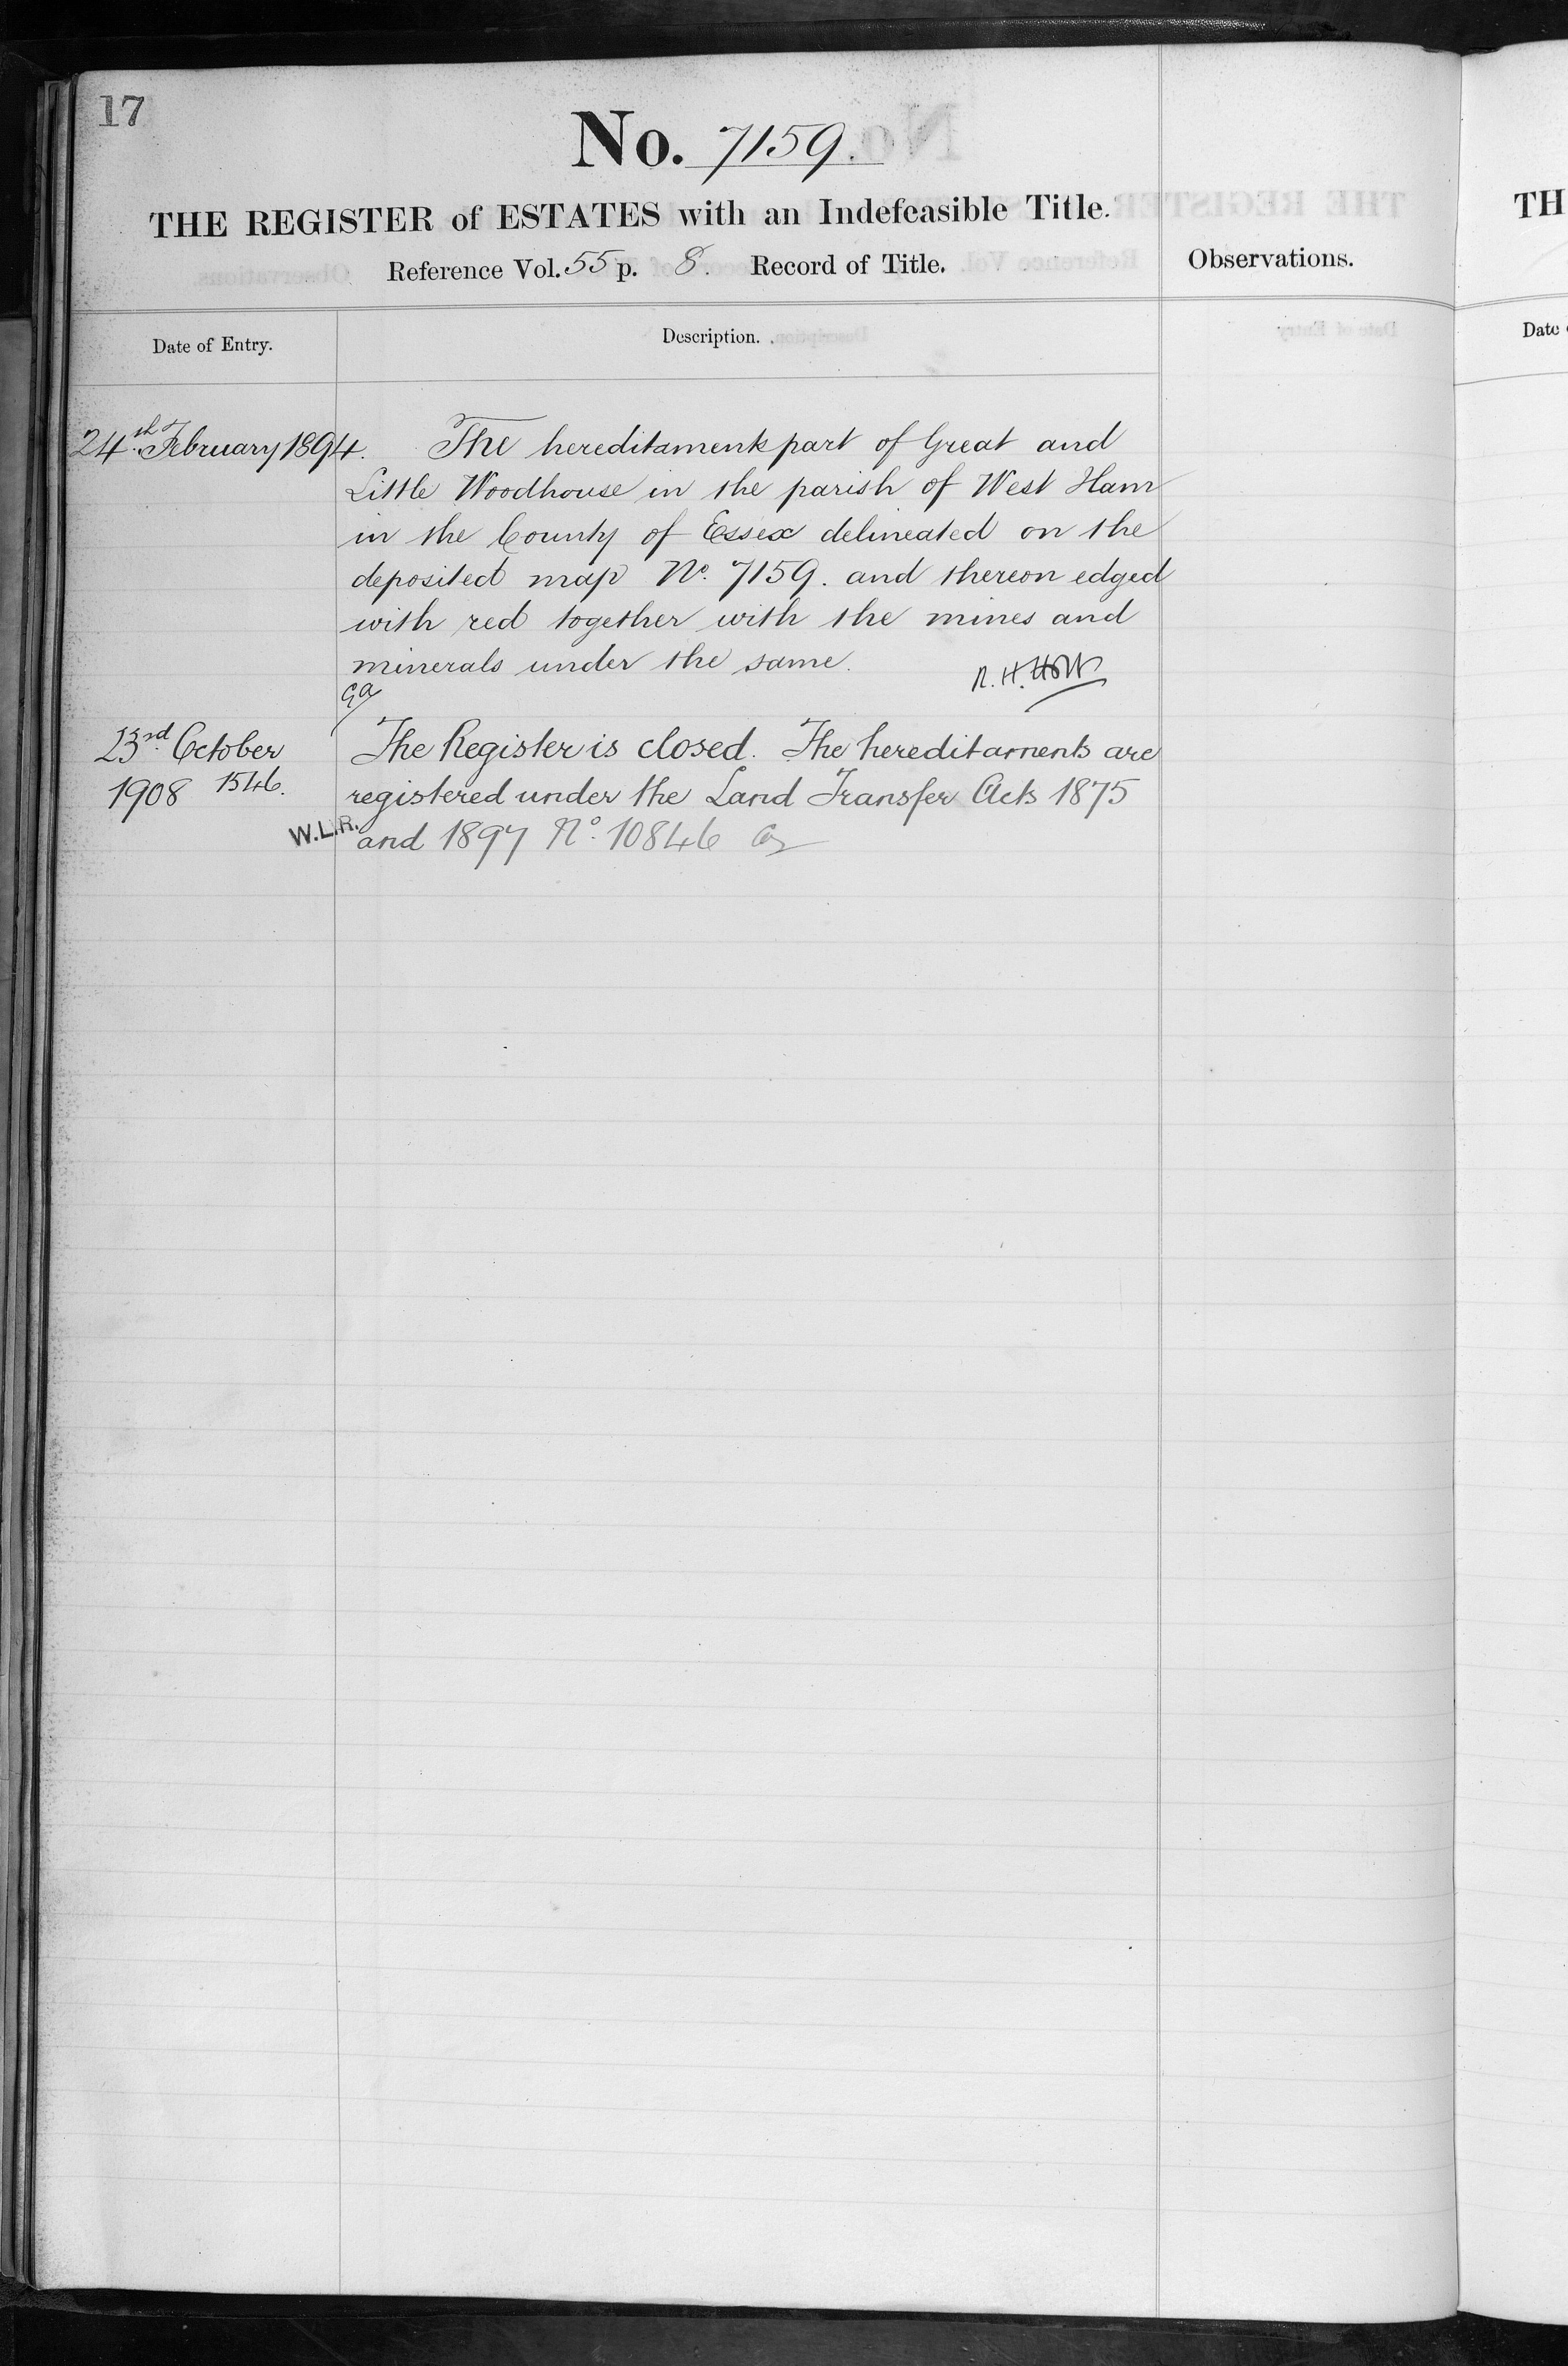 17
No. 7159.
THE REGISTER of ESTATES with an Indefeasible Title.
Reference Vol. 55 p. 8. Record of Title.
Observations.
TH
Date of Entry.
Description.
Date
24th February 1894. The hereditaments part of Great and
Little Woodhouse in the parish of West Ham
in the County of Essex delineated on the
deposited map No. 7159. and thereon edged
with red together with the mines and
minerals under the same.
R. H. Holt
23rd October The Register is closed. The hereditaments are
1908 1546. registered under the Land Transfer Acts 1875
W.L.R. and 1897 No. 10846